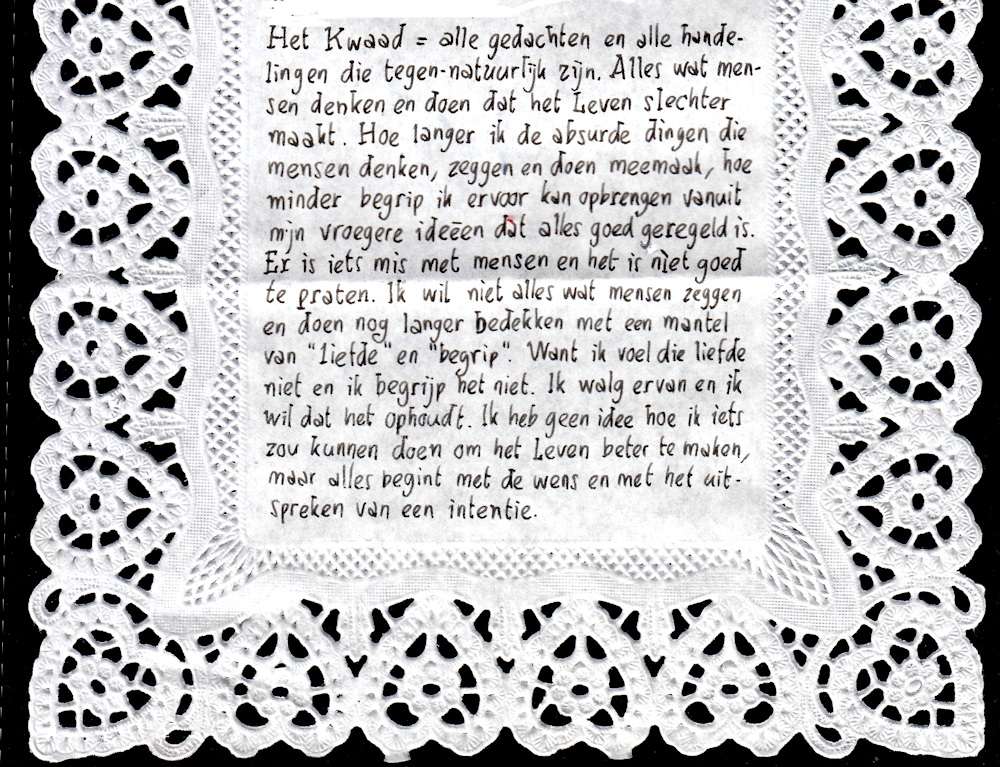 Het Kwaad = alle gedachten en alle hande-
lingen die tegen-natuurlijk zijn. Alles wat men-
sen denken en doen dat het Leven slechter
maakt. Hoe langer ik de absurde dingen die
mensen denken, zeggen en doen meemaak, hoe
minder begrip ik ervoor kan opbrengen vanuit
mijn vroegere ideeën dat alles goed geregeld is.
Er is iets mis met mensen en het is niet goed
te praten. Ik wil niet alles wat mensen zeggen
en doen nog langer bedekken met een mantel
van "liefde" en "begrip". Want ik voel die liefde
niet en ik begrijp het niet. Ik walg ervan en ik
wil dat het ophoudt. Ik heb geen idee hoe ik iets
zou kunnen doen om het Leven beter te maken,
maar alles begint met de wens en met het uit-
spreken van een intentie.